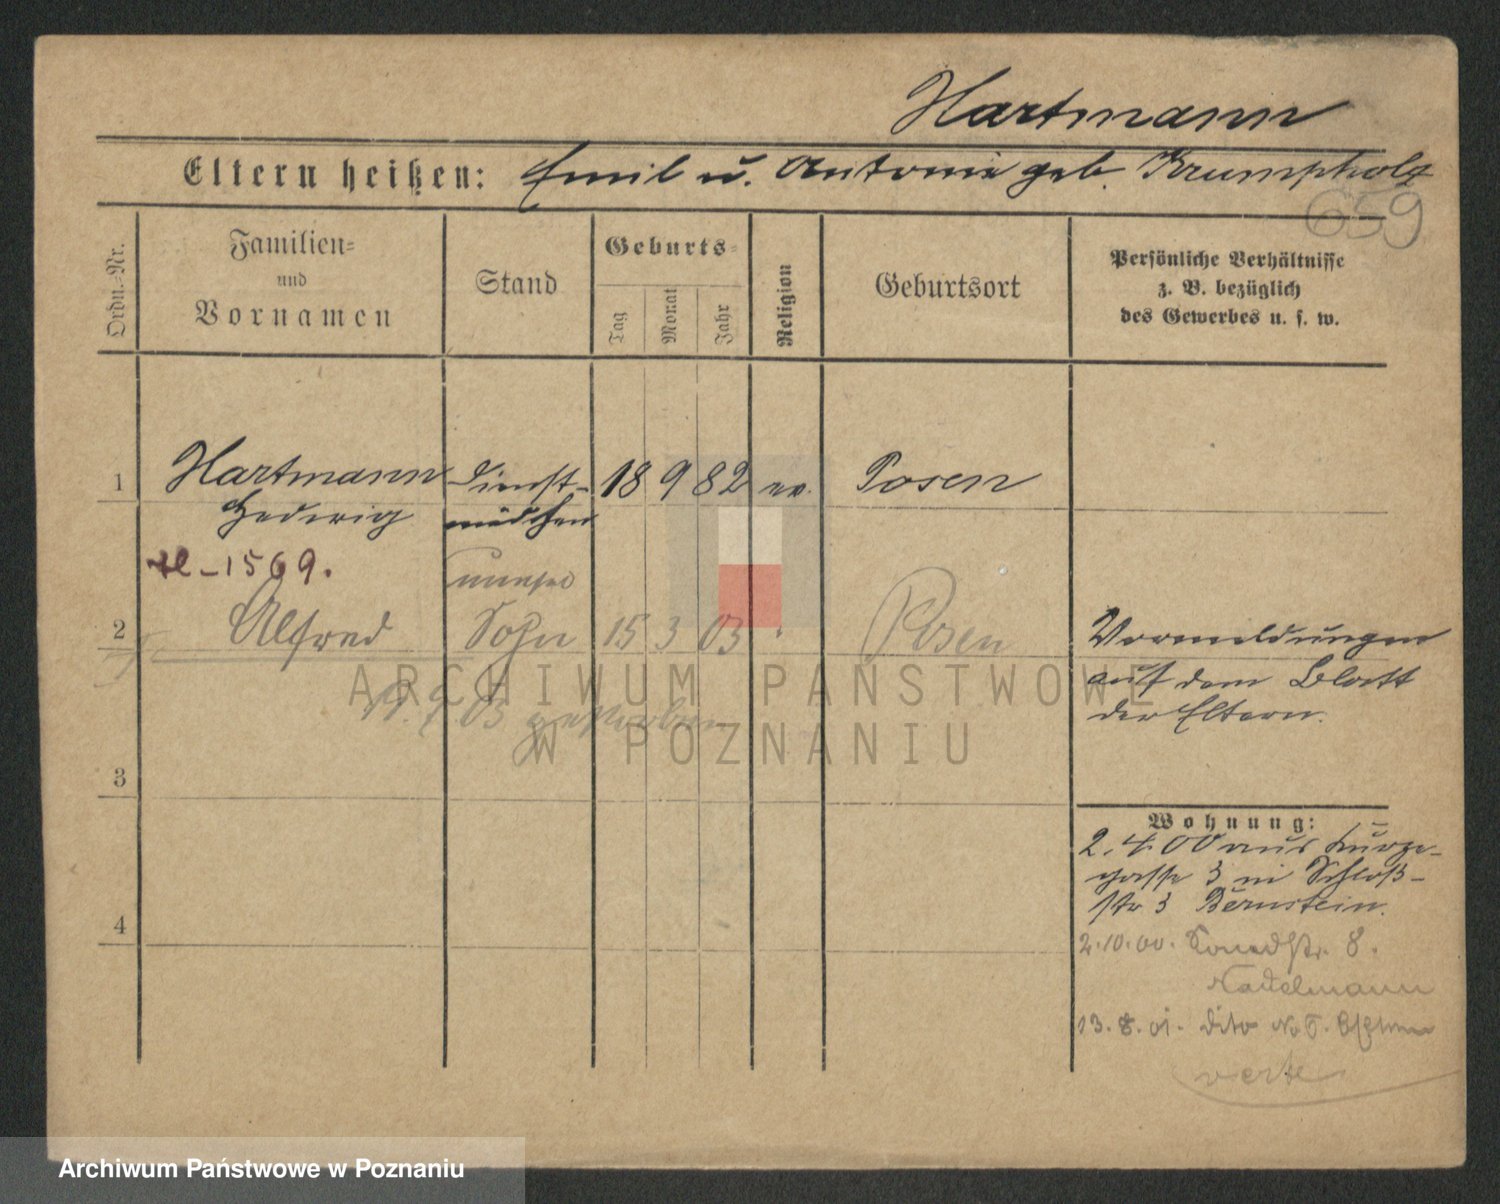 Hartmann
Eltern heißen: Emil u. Antonie geb. Krumpholz
659
Ordn.-Nr.
Familien-
und
Vornamen
Stand
Geburts-
Tag
Monat
Jahr
Religion
Geburtsort
Persönliche Verhältnisse
z. B. bezüglich
des Gewerbes u. s. w.
1 Hartmann Dienst- 18 9 82 ev. Posen
Hedwig mädchen
1569.
unehel
2 Alfred Sohn 15 3 03 Posen
Vormeldungen
auf dem Blatt
der Eltern.
03 gestorben
3
4
Wohnung:
2.4.00 aus Kurze-
gasse 3 in Schloß-
str 3 Bernstein.
2.10.00. 8.
Nadelmann
13.8.01. dito No
verte
ARCHIWUM PAŃSTWOWE
W POZNANIU
Archiwum Państwowe w Poznaniu